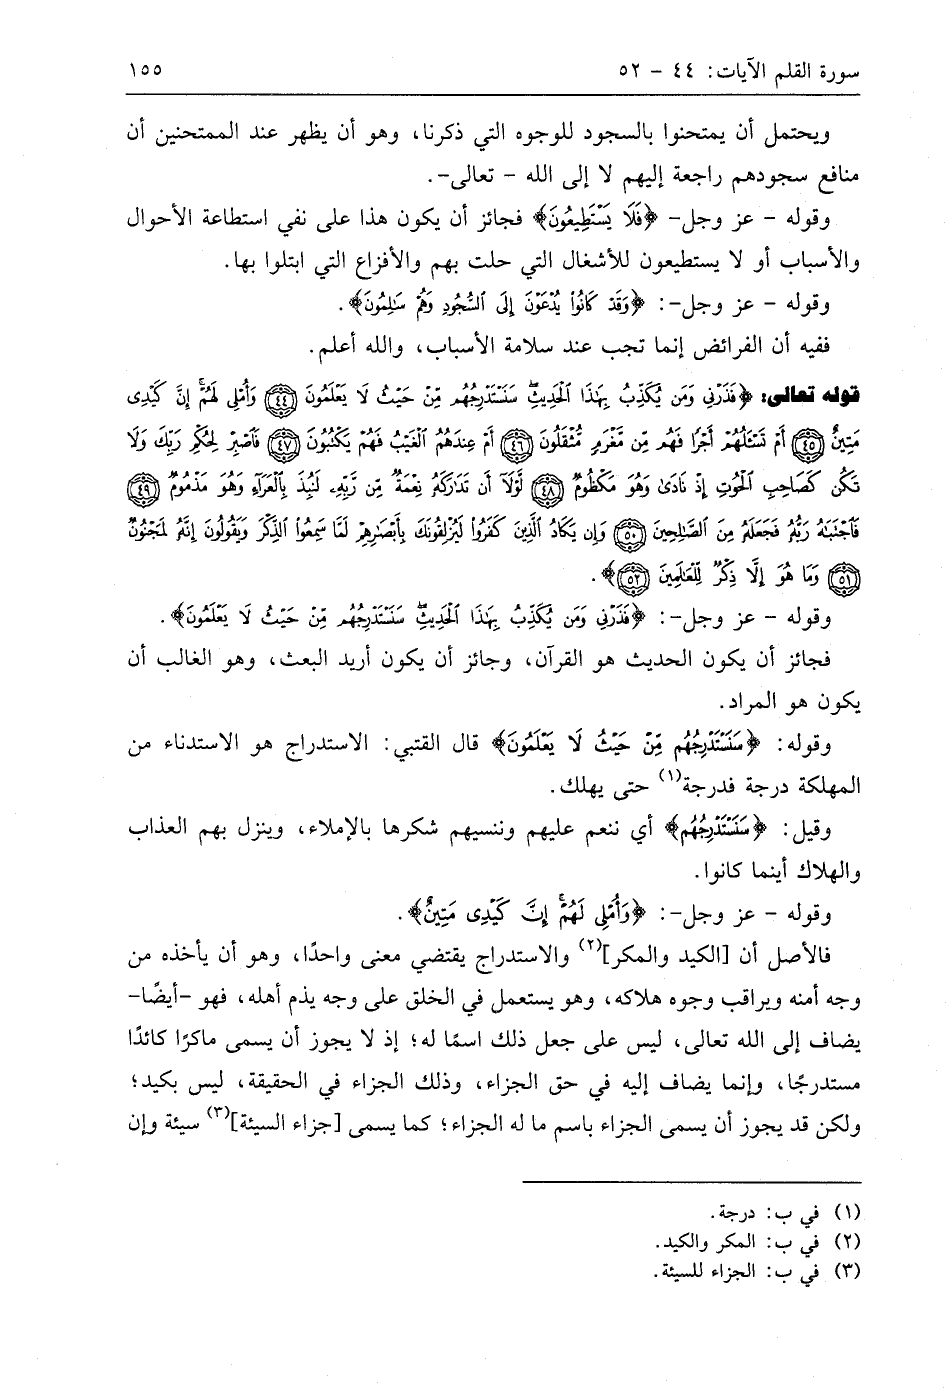 سورة القلم الآيات: ٤٤ - ٥٢ ١٥٥
ويحتمل أن يمتحنوا بالسجود للوجوه التي ذكرنا، وهو أن يظهر عند الممتحنين أن
منافع سجودهم راجعة إليهم لا إلى الله - تعالى-.
وقوله - عز وجل- ﴿فَلَا يَسْتَطِيعُونَ﴾ فجائز أن يكون هذا على نفي استطاعة الأحوال
والأسباب أو لا يستطيعون للأشغال التي حلت بهم والأفزاع التي ابتلوا بها.
وقوله - عز وجل-: ﴿وَقَدْ كَانُوا۟ يُدْعَوْنَ إِلَى ٱلسُّجُودِ وَهُمْ سَٰلِمُونَ﴾.
ففيه أن الفرائض إنما تجب عند سلامة الأسباب، والله أعلم.
قوله تعالى: ﴿فَذَرْنِى وَمَن يُكَذِّبُ بِهَٰذَا ٱلْحَدِيثِۖ سَنَسْتَدْرِجُهُم مِّنْ حَيْثُ لَا يَعْلَمُونَ ٤٤ وَأُمْلِى لَهُمْۚ إِنَّ كَيْدِى
مَتِينٌ ٤٥ أَمْ تَسْـَٔلُهُمْ أَجْرًا فَهُم مِّن مَّغْرَمٍ مُّثْقَلُونَ ٤٦ أَمْ عِندَهُمُ ٱلْغَيْبُ فَهُمْ يَكْتُبُونَ ٤٧ فَٱصْبِرْ لِحُكْمِ رَبِّكَ وَلَا
تَكُن كَصَاحِبِ ٱلْحُوتِ إِذْ نَادَىٰ وَهُوَ مَكْظُومٌ ٤٨ لَّوْلَآ أَن تَدَٰرَكَهُۥ نِعْمَةٌ مِّن رَّبِّهِۦ لَنُبِذَ بِٱلْعَرَآءِ وَهُوَ مَذْمُومٌ ٤٩
فَٱجْتَبَٰهُ رَبُّهُۥ فَجَعَلَهُۥ مِنَ ٱلصَّٰلِحِينَ ٥٠ وَإِن يَكَادُ ٱلَّذِينَ كَفَرُوا۟ لَيُزْلِقُونَكَ بِأَبْصَٰرِهِمْ لَمَّا سَمِعُوا۟ ٱلذِّكْرَ وَيَقُولُونَ إِنَّهُۥ لَمَجْنُونٌ
٥١ وَمَا هُوَ إِلَّا ذِكْرٌ لِّلْعَٰلَمِينَ ٥٢﴾.
وقوله - عز وجل-: ﴿فَذَرْنِى وَمَن يُكَذِّبُ بِهَٰذَا ٱلْحَدِيثِۖ سَنَسْتَدْرِجُهُم مِّنْ حَيْثُ لَا يَعْلَمُونَ﴾.
فجائز أن يكون الحديث هو القرآن، وجائز أن يكون أريد البعث، وهو الغالب أن
يكون هو المراد.
وقوله: ﴿سَنَسْتَدْرِجُهُم مِّنْ حَيْثُ لَا يَعْلَمُونَ﴾ قال القتبي: الاستدراج هو الاستدناء من
المهلكة درجة فدرجة(١) حتى يهلك.
وقيل: ﴿سَنَسْتَدْرِجُهُم﴾ أي ننعم عليهم وننسيهم شكرها بالإملاء، وينزل بهم العذاب
والهلاك أينما كانوا.
وقوله - عز وجل-: ﴿وَأُمْلِى لَهُمْۚ إِنَّ كَيْدِى مَتِينٌ﴾.
فالأصل أن [الكيد والمكر](٢) والاستدراج يقتضي معنى واحدًا، وهو أن يأخذه من
وجه أمنه ويراقب وجوه هلاكه، وهو يستعمل في الخلق على وجه يذم أهله، فهو -أيضًا-
يضاف إلى الله تعالى، ليس على جعل ذلك اسمًا له؛ إذ لا يجوز أن يسمى ماكرًا كائدًا
مستدرجًا، وإنما يضاف إليه في حق الجزاء، وذلك الجزاء في الحقيقة، ليس بكيد؛
ولكن قد يجوز أن يسمى الجزاء باسم ما له الجزاء؛ كما يسمى [جزاء السيئة](٣) سيئة وإن
(١) في ب: درجة.
(٢) في ب: المكر والكيد.
(٣) في ب: الجزاء للسيئة.